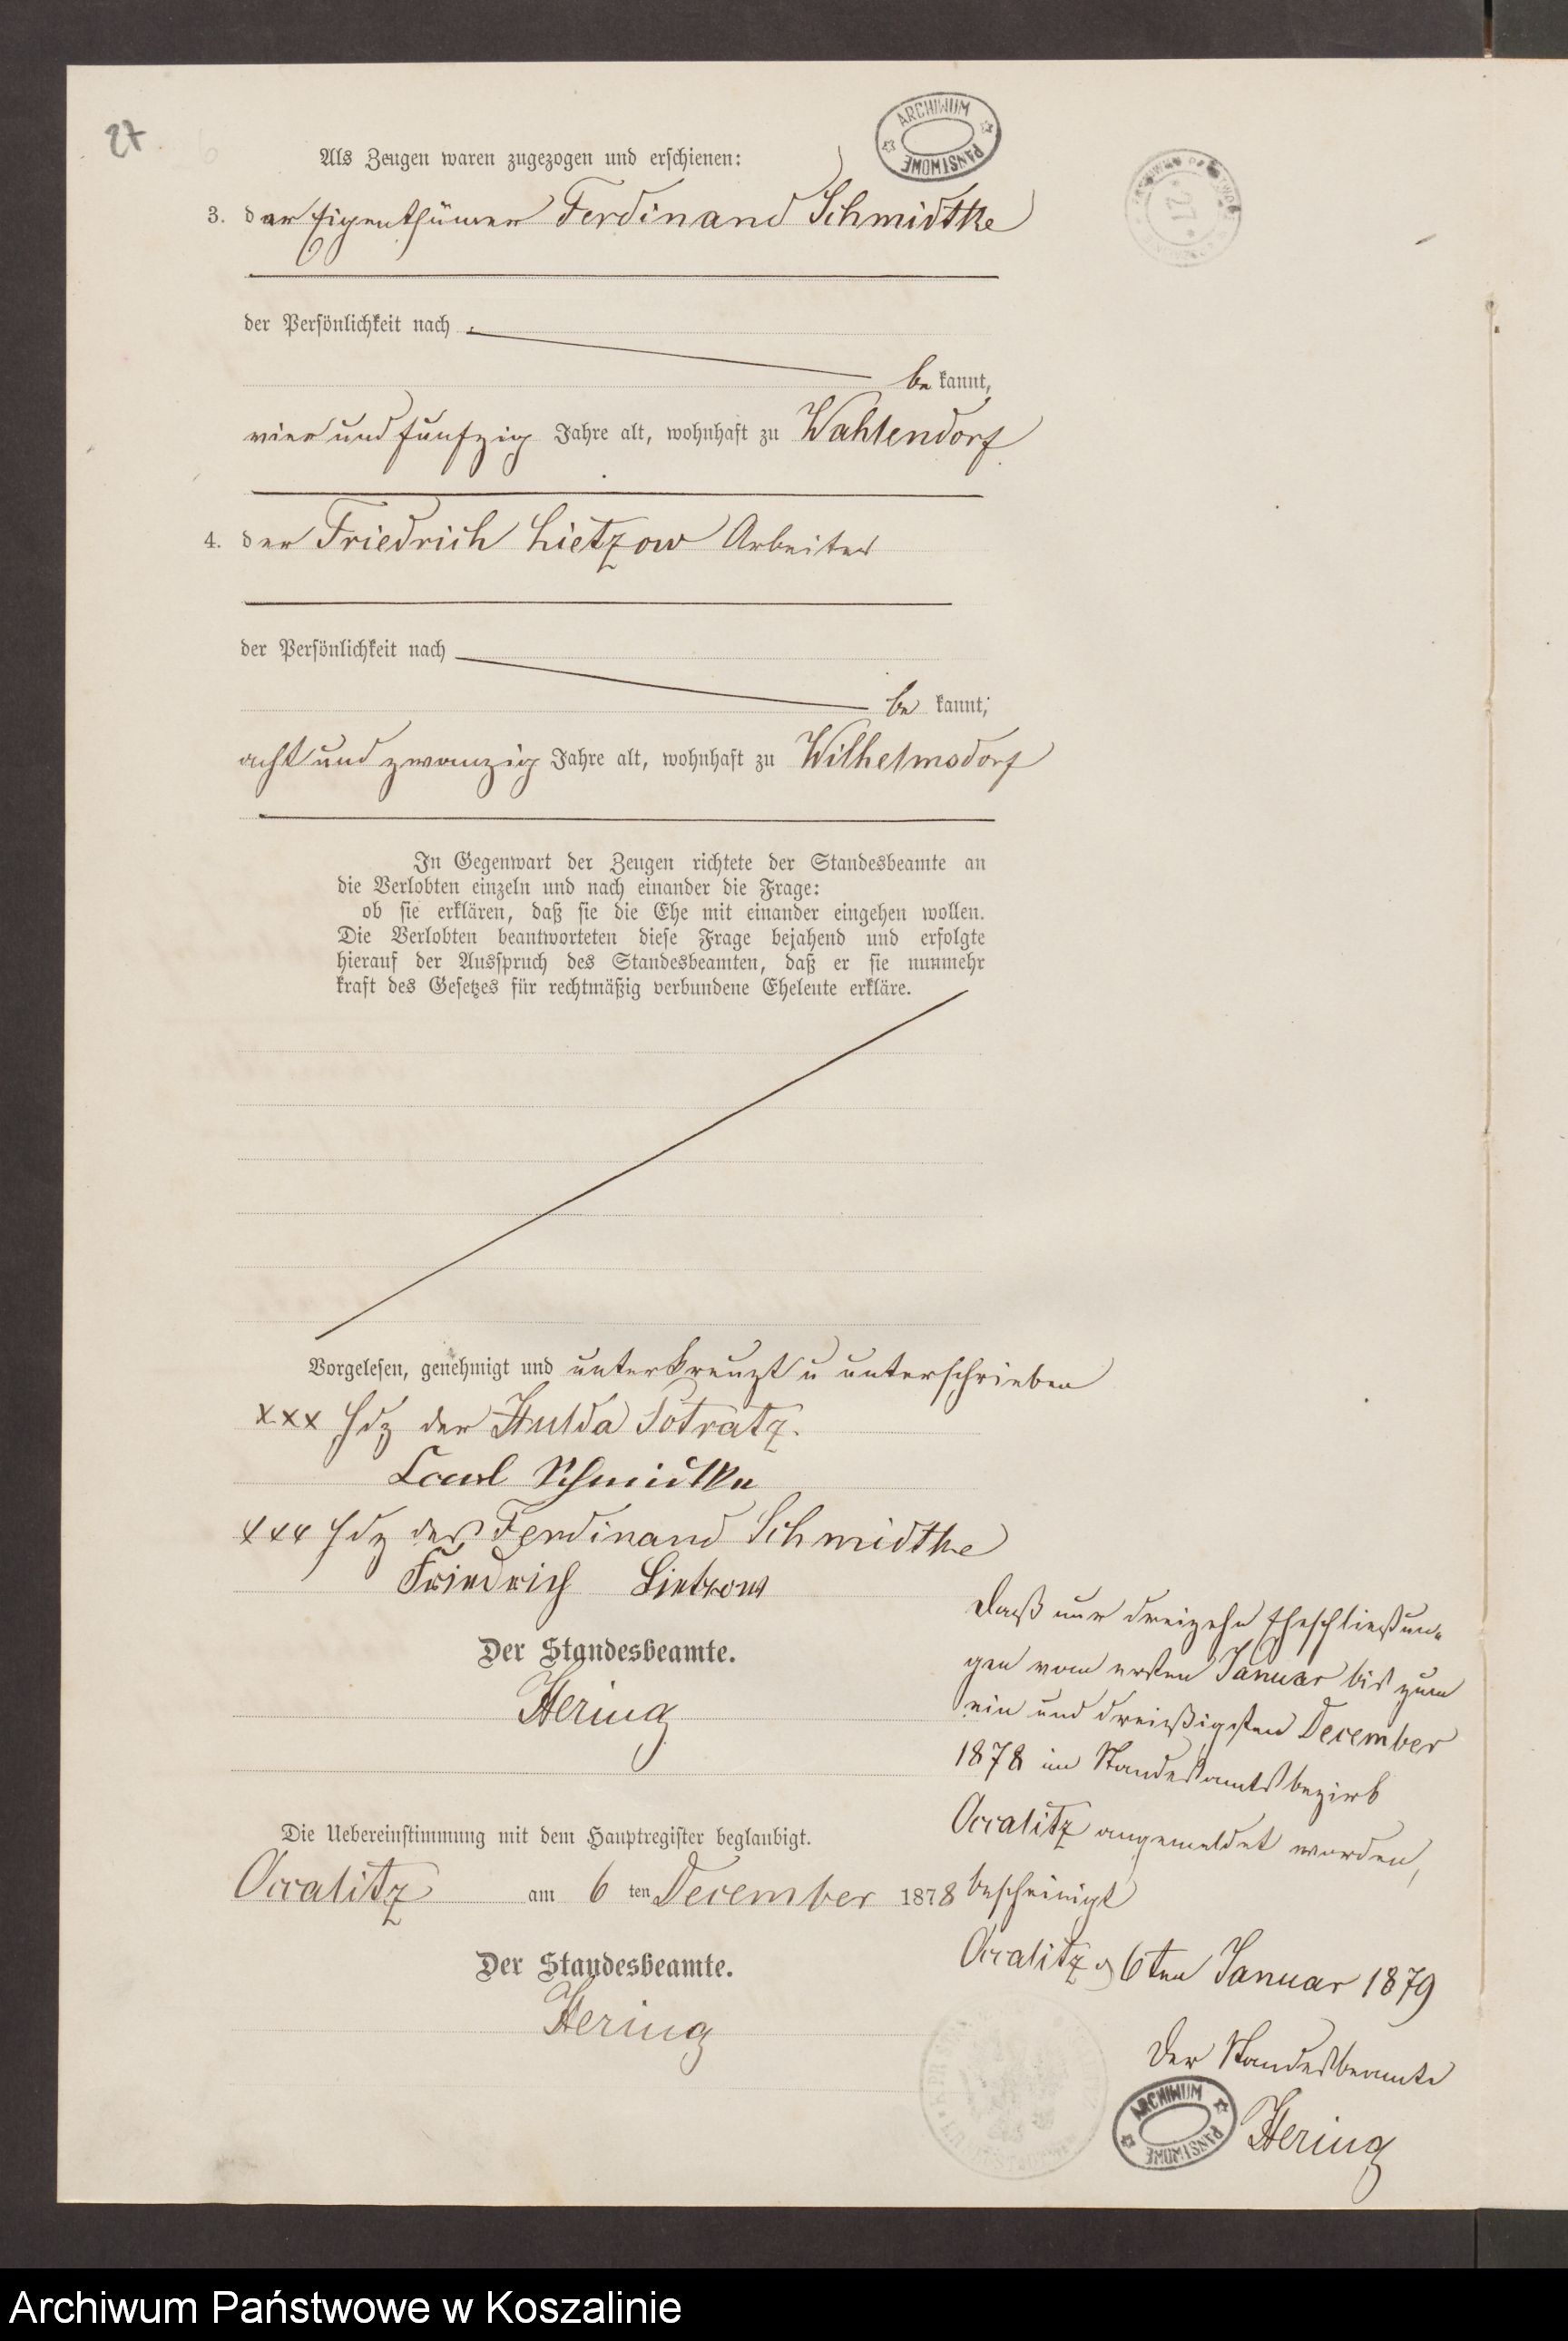 27
ARCHIWUM PAŃSTWOWE
Als Zeugen waren zugezogen und erschienen:
3. der Eigenthümer Ferdinand Schmidtke
27
der Persönlichkeit nach
be kannt,
vier und fünfzig Jahre alt, wohnhaft zu Wahlendorf
4. der Friedrich Lietzow Arbeiter
der Persönlichkeit nach
be kannt,
acht und zwanzig Jahre alt, wohnhaft zu Wilhelmsdorf
In Gegenwart der Zeugen richtete der Standesbeamte an
die Verlobten einzeln und nach einander die Frage:
ob sie erklären, daß sie die Ehe mit einander eingehen wollen.
Die Verlobten beantworteten diese Frage bejahend und erfolgte
hierauf der Ausspruch des Standesbeamten, daß er sie nunmehr
kraft des Gesetzes für rechtmäßig verbundene Eheleute erkläre.
Vorgelesen, genehmigt und unterkreuzt u unterschrieben
xxx Hdz der Hulda Potratz.
Carl Schmidtke
xxx Hdz des Ferdinand Schmidtke
Friedrich Lietzow
Der Standesbeamte.
Hering
Die Uebereinstimmung mit dem Hauptregister beglaubigt.
Occalitz am 6 ten December 1878
Der Standesbeamte.
Hering
Daß nur dreizehn Eheschließun-
gen vom ersten Januar bis zum
ein und dreißigsten December
1878 im Standesamtsbezirk
Occalitz angemeldet worden,
bescheinigt
Occalitz d 6ten Januar 1879
Der Standesbeamte
ARCHIWUM PAŃSTWOWE
Hering
Archiwum Państwowe w Koszalinie